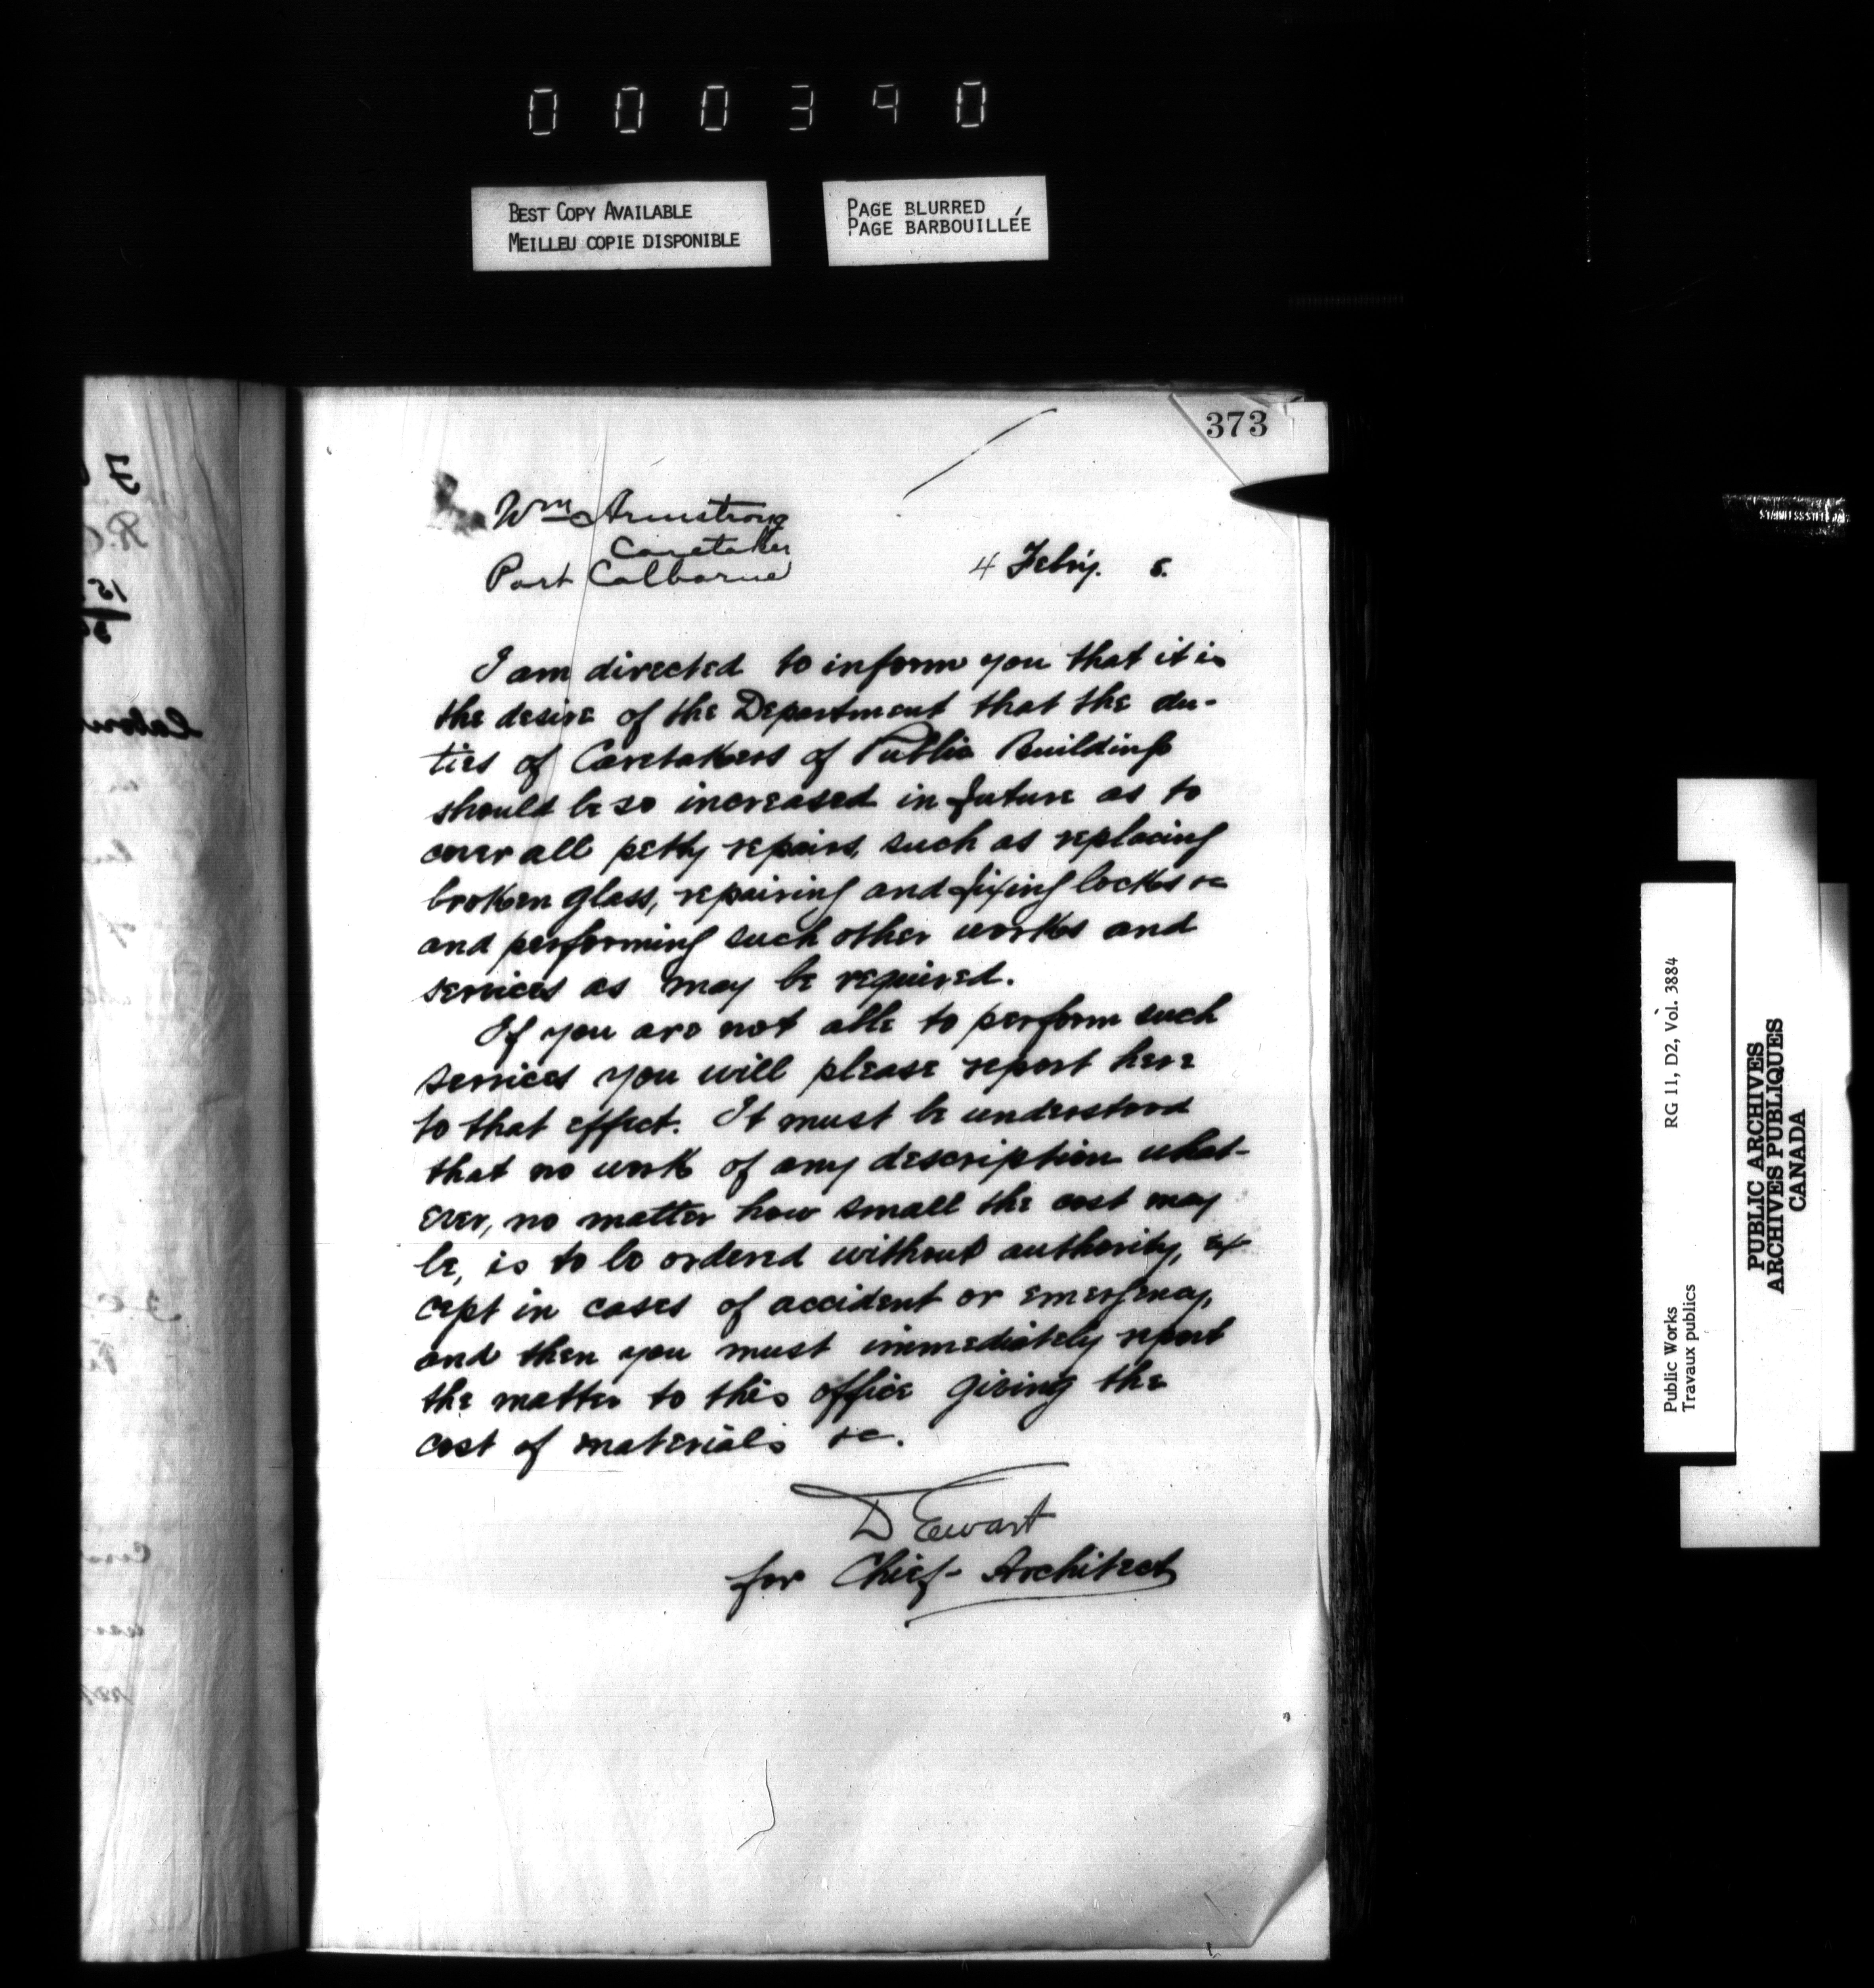 000390
BEST COPY AVAILABLE
MEILLEU COPIE DISPONIBLE
PAGE BLURRED
PAGE BARBOUILLÉE
373
Wm Armstrong
Caretaker
Port Colborne
4 Febry. 5.
I am directed to inform you that it is
the desire of the Department that the du-
ties of Caretakers of Public Buildings
should be so increased in future as to
cover all petty repairs, such as replacing
broken glass, repairing and fixing locks &c
and performing such other works and
services as may be required.
If you are not able to perform such
services you will please report here
to that effect. It must be understood
that no work of any description what-
ever, no matter how small the cost may
be, is to be ordered without authority, ex
cept in cases of accident or emergency,
and then you must immediately report
the matter to this office giving the
cost of materials &c.
D Ewart
for Chief Architect
Public Works RG 11, D2, Vol. 3884
Travaux publics
PUBLIC ARCHIVES
ARCHIVES PUBLIQUES
CANADA